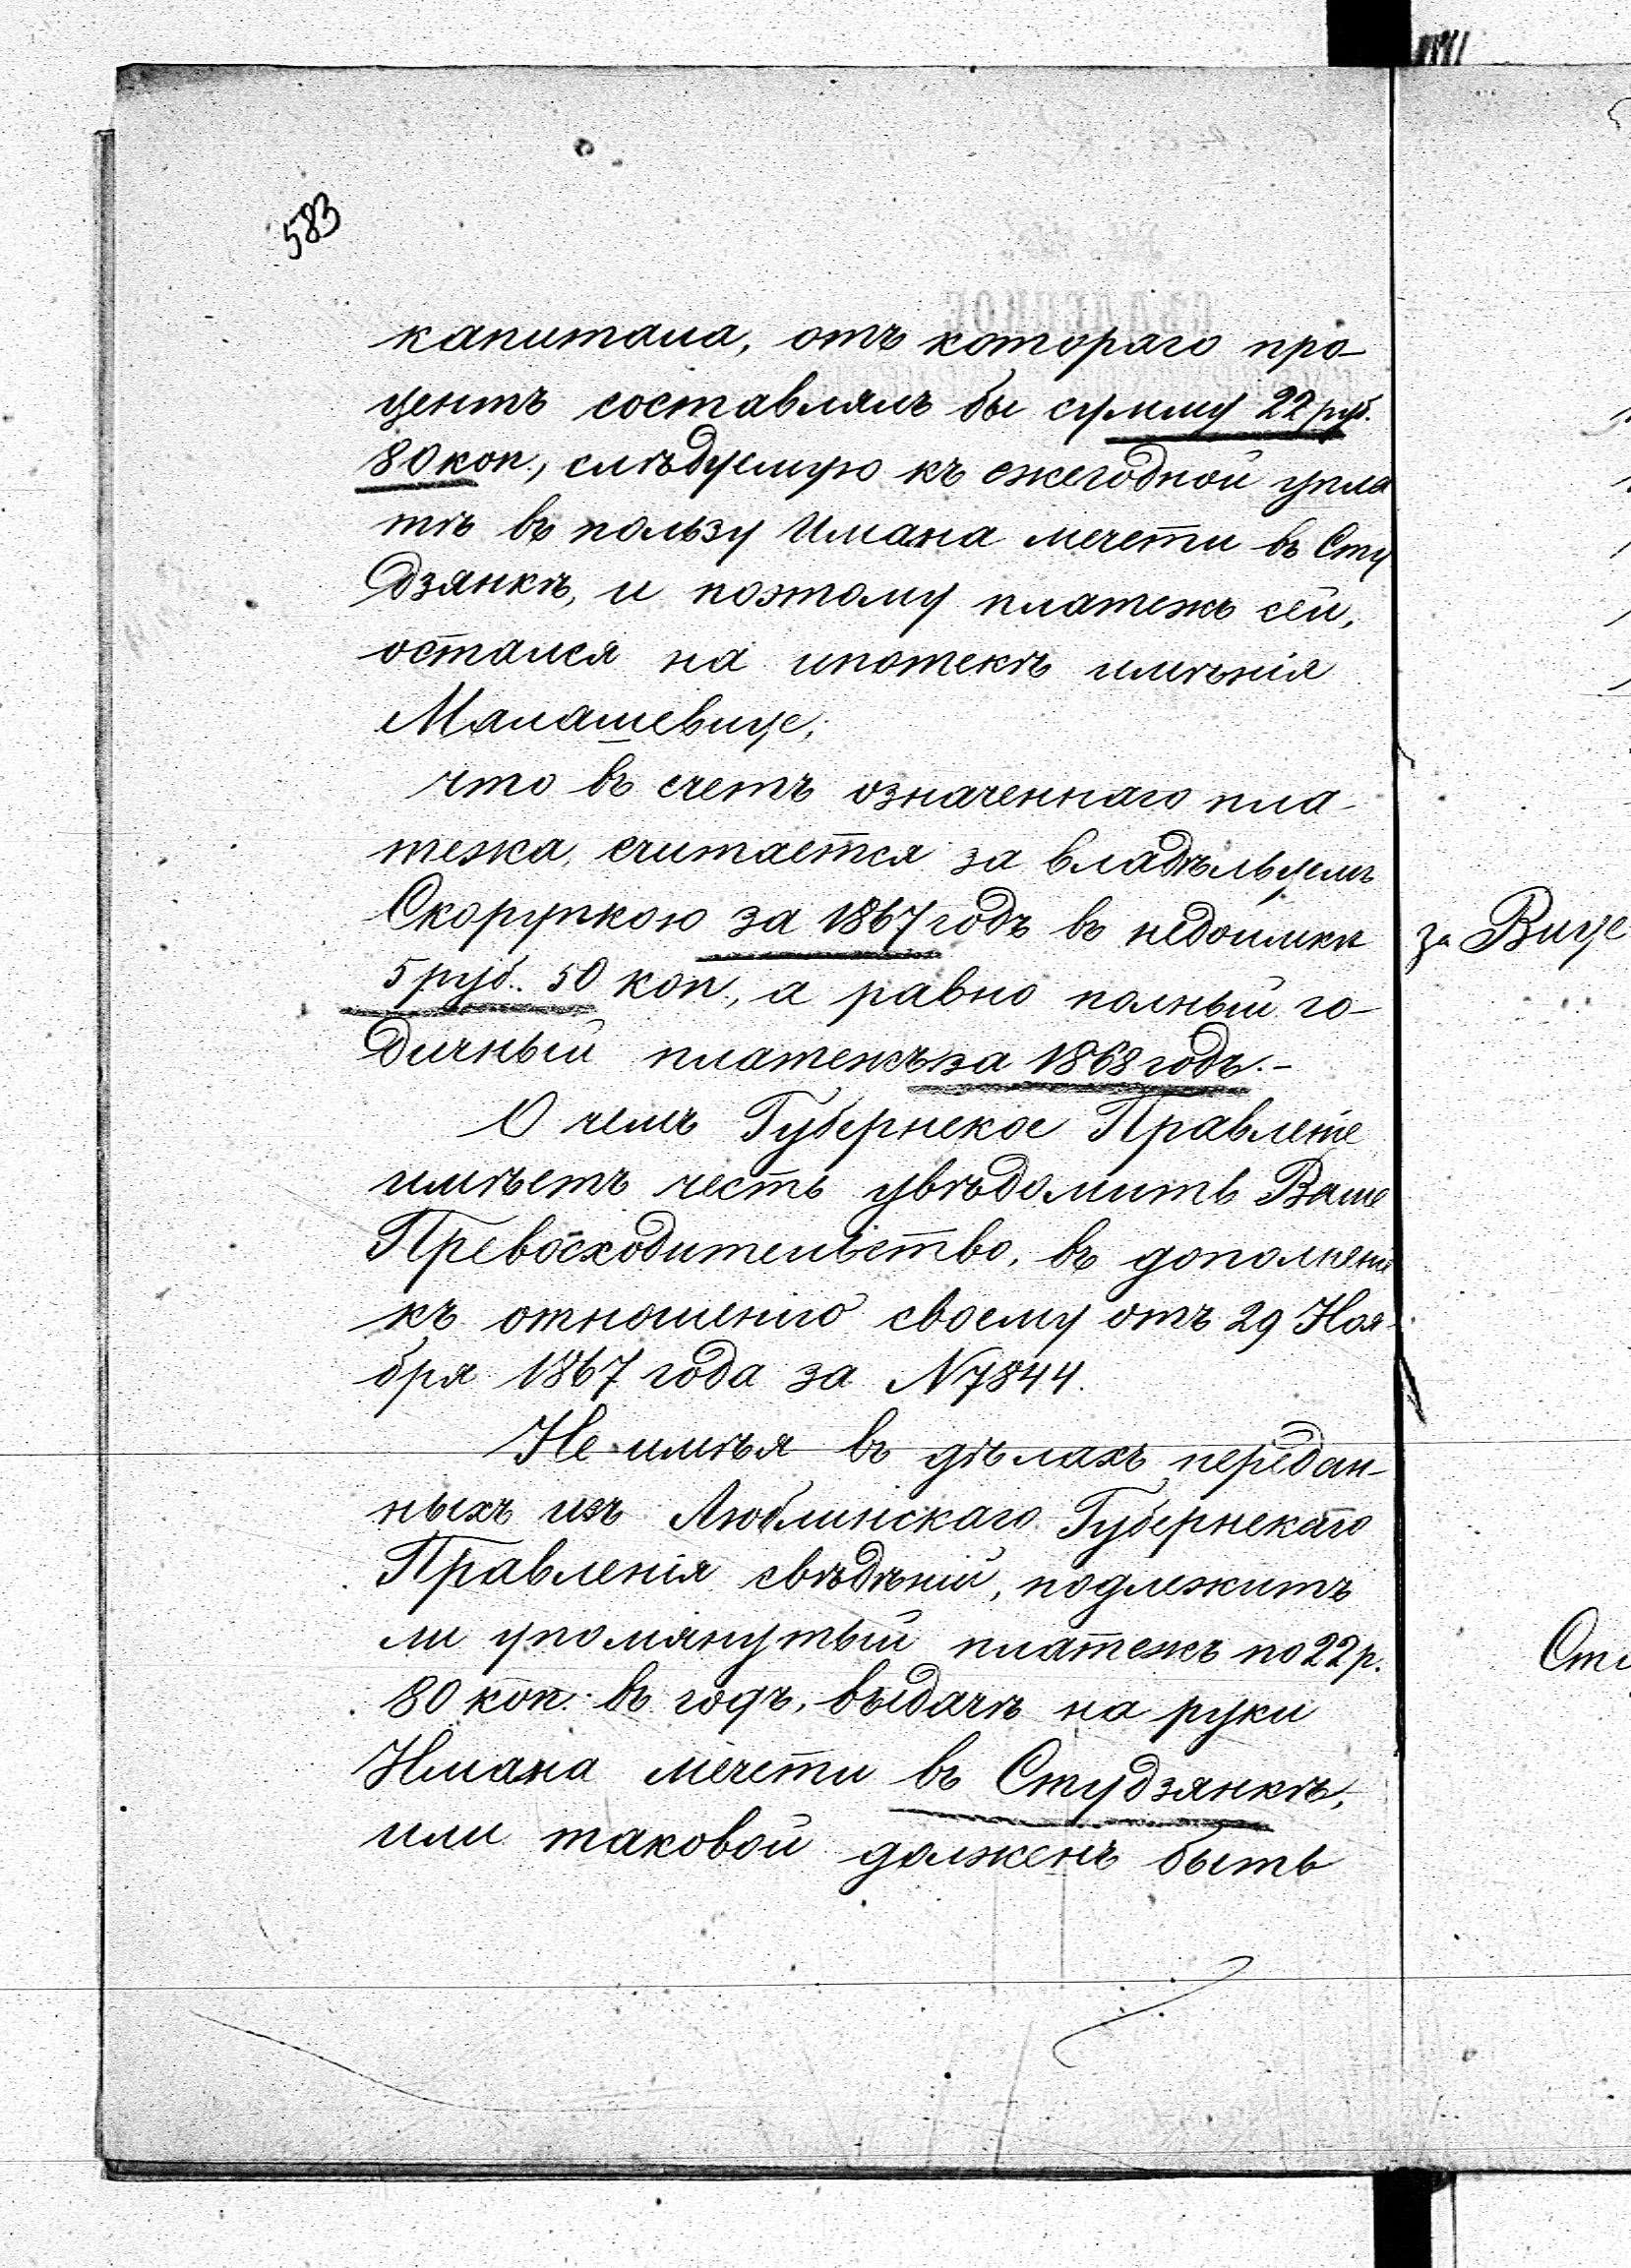 583
капитала, отъ котораго про-
центъ составлялъ бы сумму 22 руб.
80 коп., слѣдуемую къ ежегодной упла
тѣ въ пользу Имана мечети въ Сту
дзянкѣ, и поэтому платежъ сей,
остался на ипотекѣ имѣнія
Малашевице;
что въ счетъ означеннаго пла-
тежа, считается за владѣльцемъ
Скорупкою за 1867 годъ въ недоимкѣ
5 руб. 50 коп., а равно полный го-
дичный платежъ за 1868 годъ.-
О чемъ Губернское Правленіе
имѣетъ честь увѣдомить Ваше
Превосходительство, въ дополненіе
къ отношенію своему отъ 29 Ноя-
бря 1867 года за N 7844.
Не имѣя въ дѣлахъ передан-
ныхъ изъ Люблинскаго Губернскаго
Правленія свѣдѣній, подлежитъ
ли упомянутый платежъ по 22 р.
80 коп. въ годъ, выдачѣ на руки
Имана мечети въ Студзянкѣ,
или таковой долженъ быть
за Вице